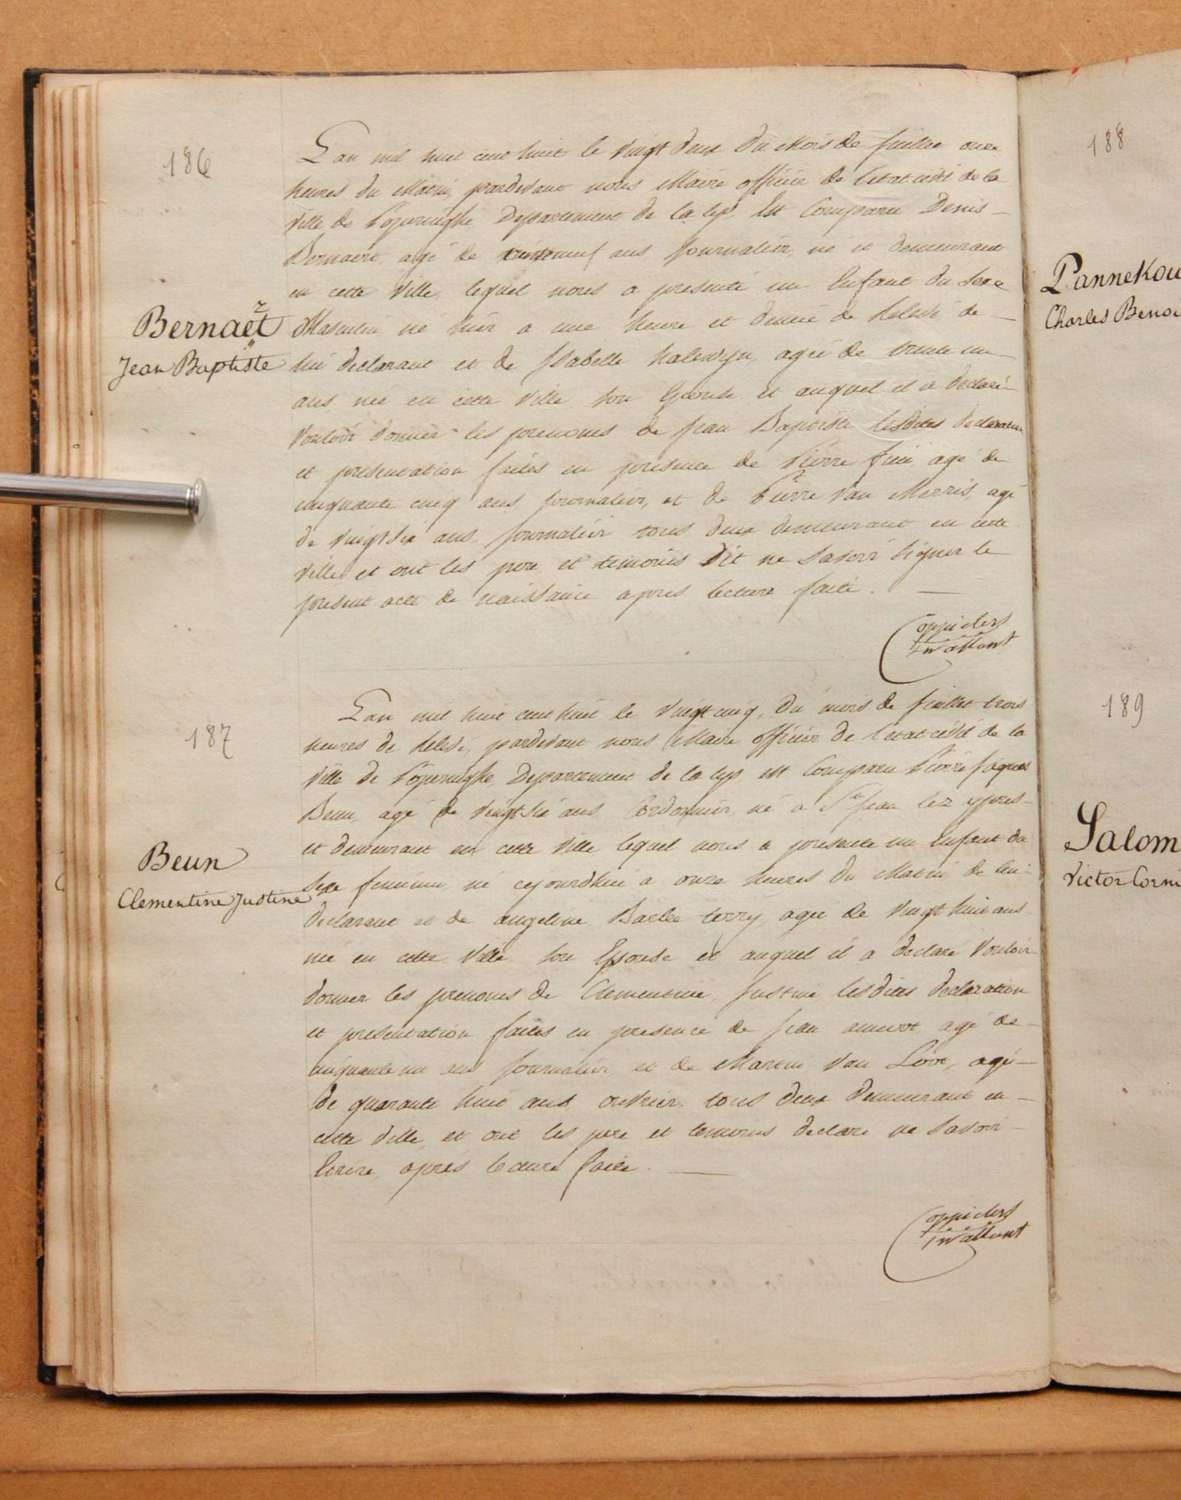 186
Bernaert
Jean Baptiste
L'an mil huit cent huit le vingt deux du mois de Juillet onze
heures du matin, pardevant nous Maire officier de l'etat civil de la
Ville de Poperinghe Departement de la Lys, Est Comparu Denis
Bernaert, agé de ans journalier, né et demeurant
en cette Ville, lequel nous a presenté un Enfant du Sexe
Masculin né hier a une heure et demie de Relevé de
lui declarant et de Isabelle Kalewyn, agée de trente un
ans née en cette Ville son Epouse et auquel il a declaré
vouloir donner les prenoms de Jean Baptiste lesdites declaration
et presentation faites en presence de Pierre agé de
cinquante cinq ans journalier, et de Pierre Van Merris, agé
de vingt six ans journalier tous deux demeurant en cette
Ville et ont les pere et temoins dit ne savoir signer le
present acte de naissance apres lecture faite.
187
Beun
Clementine Justine
L'an mil huit cent huit le vingt cinq, du mois de Juillet trois
heures de Relevé, pardevant nous Maire officier de l'etat civil de la
Ville de Poperinghe, Departement de la Lys est Comparu Pierre Jaques
Beun, agé de vingt six ans Cordonnier, né a St Jean lez ypres
et demeurant en cette Ville lequel nous a presenté un Enfant du
Sexe feminin, né cejourdhui a onze heures du Matin de lui
declarant et de angeline Barbe terry, agée de vingt huit ans
née en cette Ville son Epouse et auquel il a declaré vouloir
donner les prenoms de Clementine, Justine lesdites declaration
et presentation faites en presence de Jean agé de
cinquante un ans journalier, et de Martin Van Love, agé
de quarante huit ans ouvrier, tous deux demeurant en
cette Ville, et ont les pere et temoins declaré ne savoir
Ecrire, apres lecture faite.
188
Pannekou
Charles Benoi
189
Salom
Victor Corni